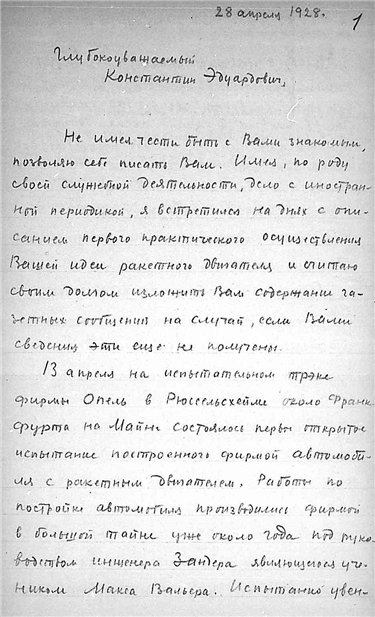 28 апреля 1928.
1
Глубокоуважаемый
Константин Эдуардович,
Не имея чести быть с Вами знакомым,
позволяю себе писать Вам. Имея, по роду
своей служебной деятельности, дело с иностран-
ной периодикой, я встретился на днях с опи-
санием первого практического осуществления
Вашей идеи ракетного двигателя и считаю
своим долгом изложить Вам содержание га-
зетных сообщений на случай, если Вами
сведения эти еще не получены.
13 апреля на испытательном трэке
фирмы Опель в Рюссельсхейме около Франк-
фурта на Майне состоялось первое открытое
испытание построенного фирмой автомоби-
ля с ракетным двигателем. Работы по
постройке автомобиля производились фирмой
в большой тайне уже около года под руко-
водством инженера Зандера являющегося уче-
ником Макса Вальера. Испытание увен-